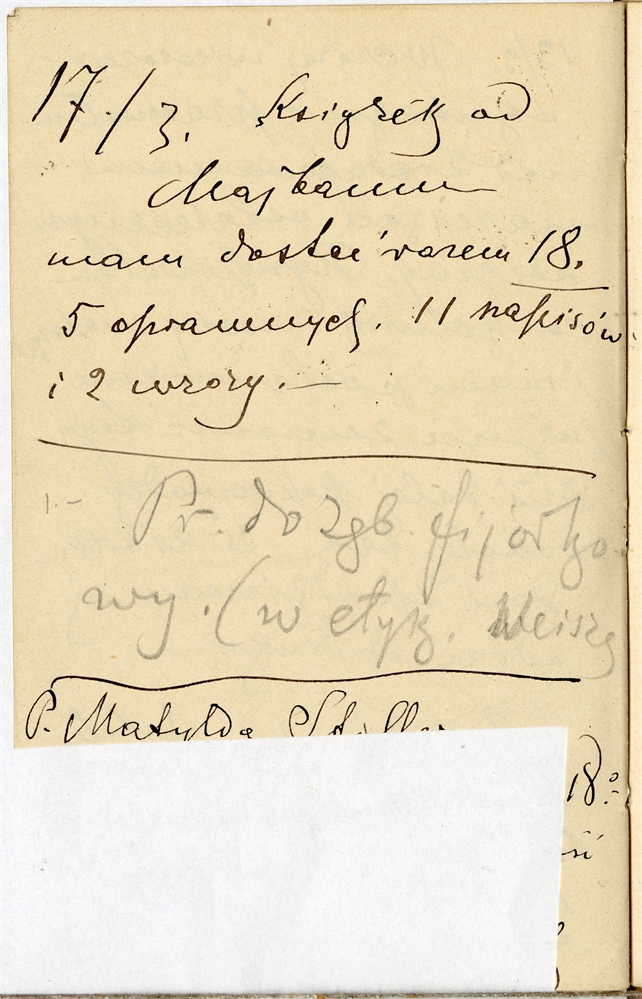 17/3. Książek od
Majbaum
mam dostać razem 18.
5 oprawnych. 11 napisów
i 2 wzory. —
1.- Pr. do zgb. fijołko-
wy. (w etyk. Weisz
P. Matylda
18.-